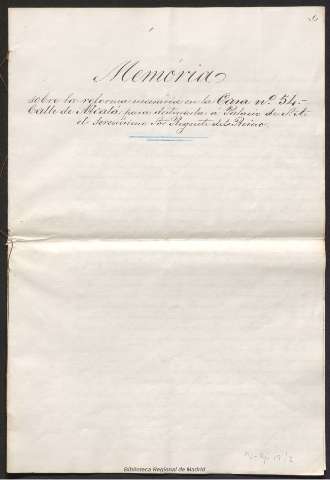 Memória
sobre la reforma necesaria en la Casa nº 54.-
Calle de Alcalá, para destinarla á Palacio de S. A.
el Serenísimo Sor Regente del Reino.
Biblioteca Regional de Madrid